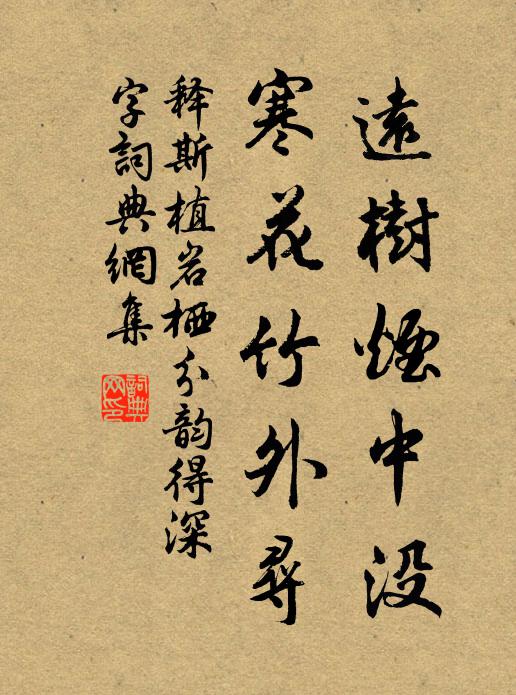 遠樹煙中没
寒花竹外尋
释斯植岩栖分韵得深
字詞典網集
詞典
网印